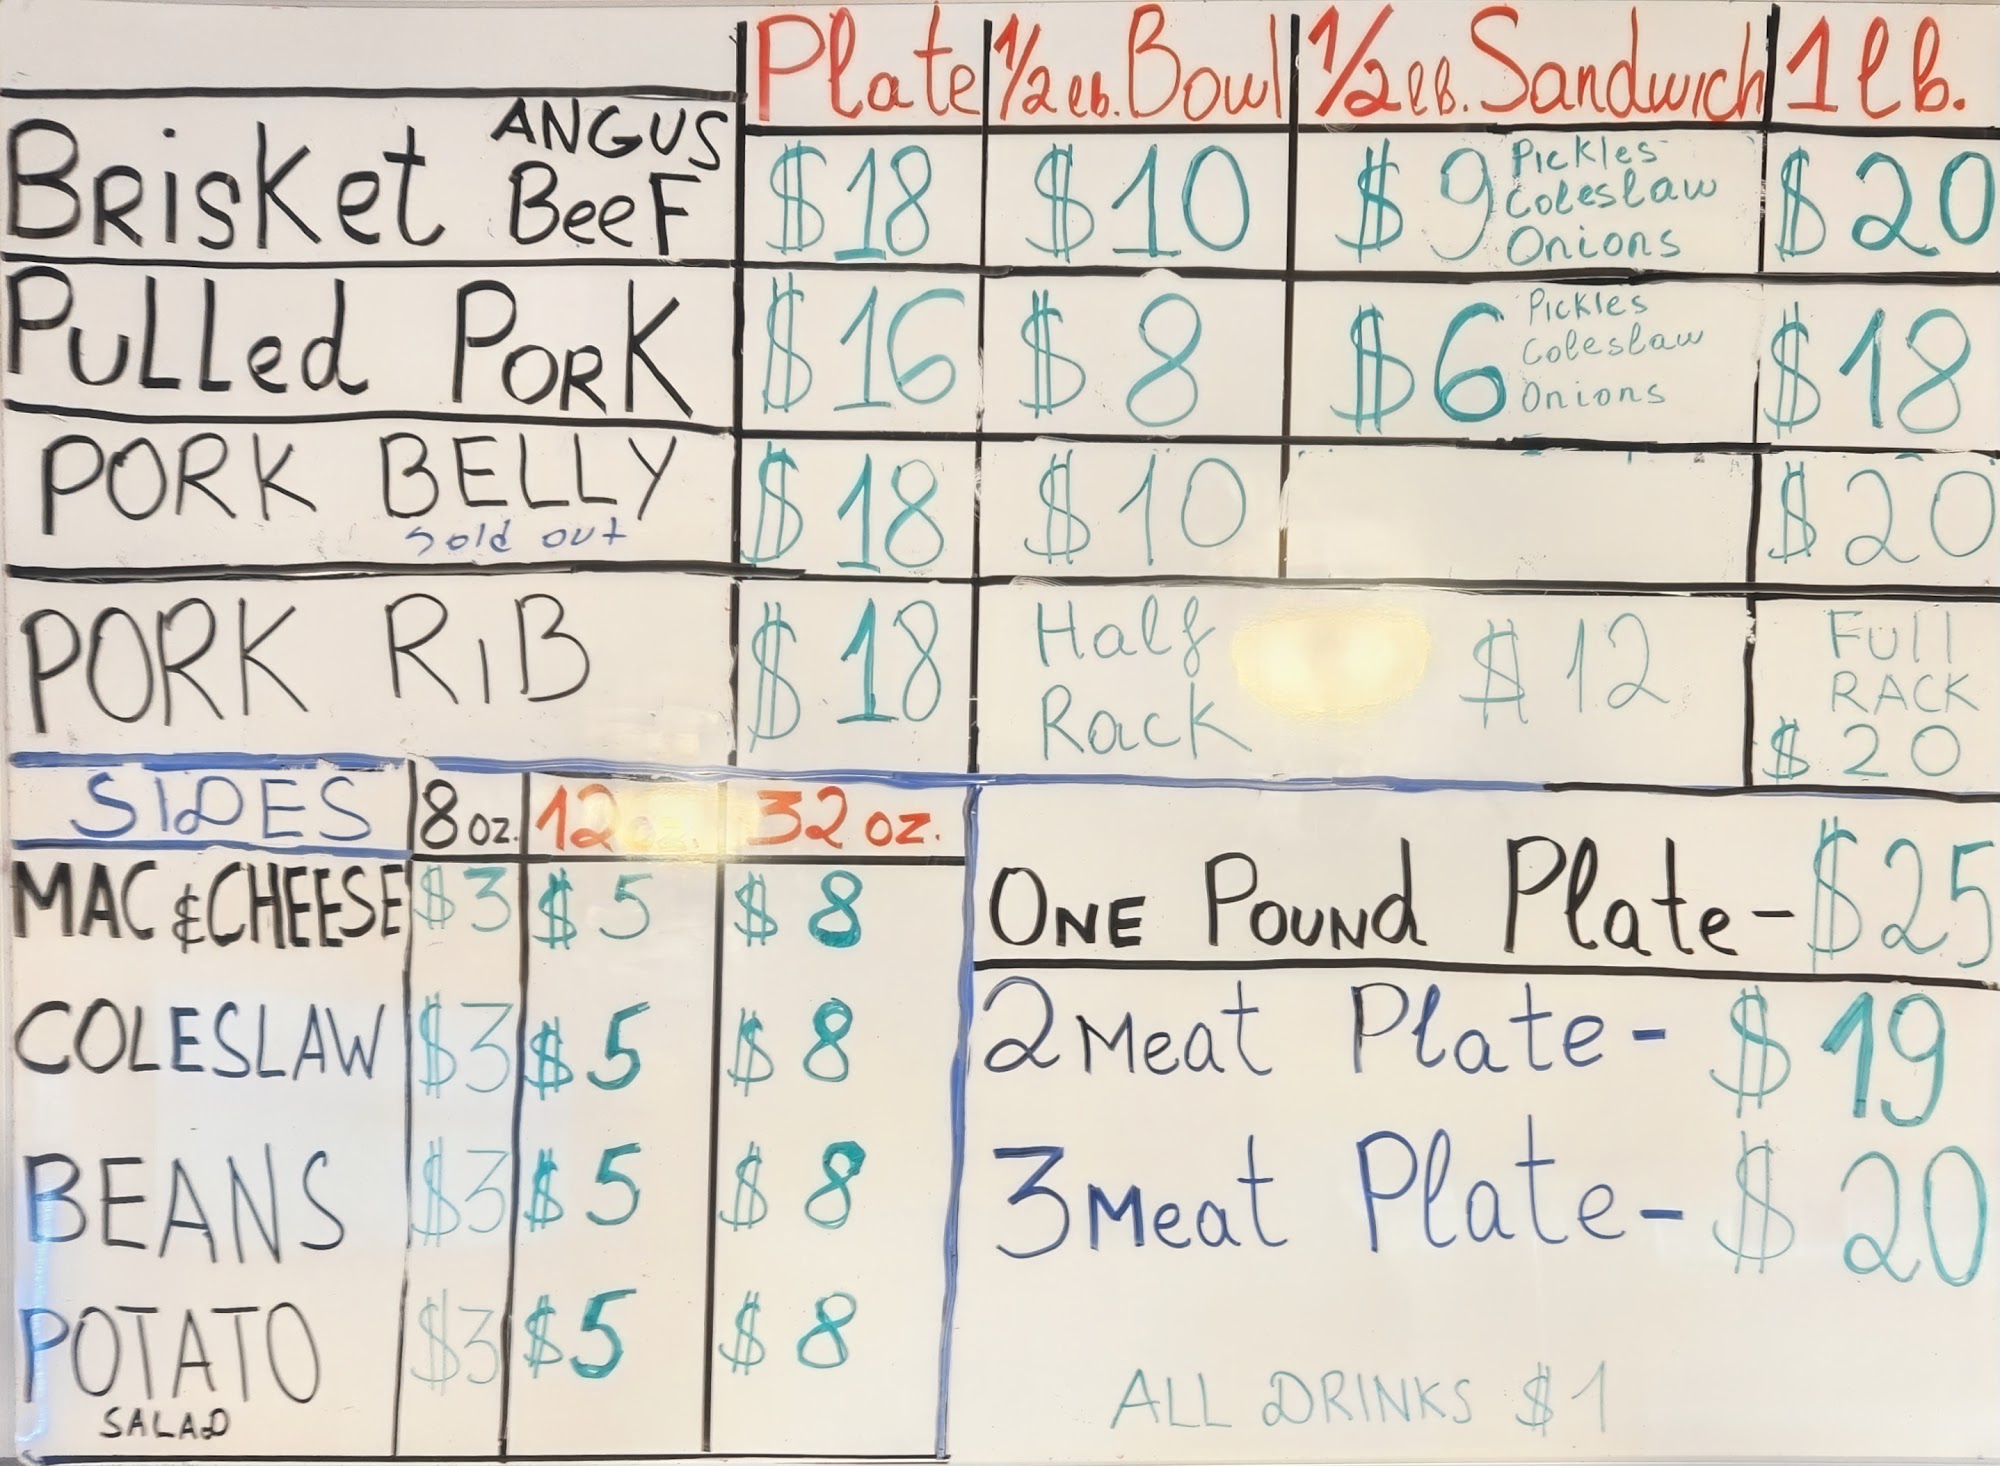 Plate 1/2 lb. Bowl 1/2 lb. Sandwich 1 lb.
Brisket ANGUS BeeF $18 $10 $9 Pickles Coleslaw Onions $20
Pulled Pork $16 $8 $6 Pickles Coleslaw Onions $18
PORK BELLY $18 $10 $20
Sold out
PORK RiB $18 Half Rack $12 Full RACK $20
SIDES 8 oz. 12 oz. 32 oz.
MAC & CHEESE $3 $5 $8
COLESLAW $3 $5 $8
BEANS $3 $5 $8
POTATO SALAD $3 $5 $8
ONE POUNd Plate - $25
2 Meat Plate - $19
3 Meat Plate - $20
ALL DRINKS $1